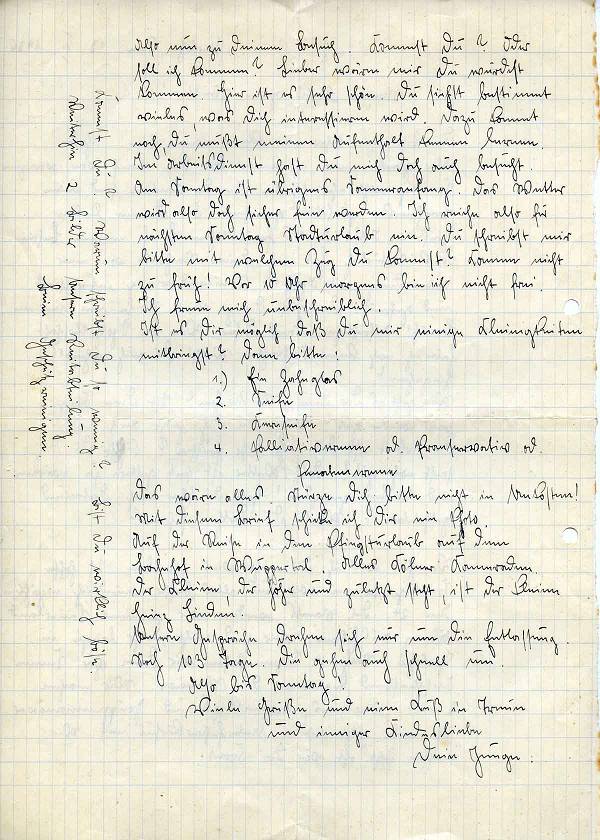 Also nun zu Deinem Besuch. Kommst Du? Oder
soll ich kommen? Lieber wäre mir Du würdest
kommen. Hier ist es sehr schön. Du siehst bestimmt
vieles, was Dich interessieren wird. Dazu kommt
noch, Du mußt meinen Aufenthalt kennen lernen.
Im Arbeitsdienst hast Du mich doch auch besucht
Am Sonntag ist übrigens Sommeranfang. Das Wetter
wird also doch sicher fein werden. Ich reiche also für
nächsten Sonntag Stadturlaub ein. Du schreibst mir
bitte mit welchem Zug Du kommst? Komme nicht
zu früh! Vor 10 Uhr morgens bin ich nicht frei.
Ich freue mich unbeschreiblich.
Ist es Dir möglich, daß Du mir einige Kleinigkeiten
mitbringst? Dann bitte:
1.) Ein Zahnglas
2. Seife
3. Kernseife
4. Palliativcreme od. Präservativ od.
creme
Das wäre alles. Stürze Dich bitte nicht in Unkosten!
Mit diesem Brief schicke ich Dir ein Photo.
Auf der Reise in den Pfingsturlaub auf dem
Bahnhof in Wuppertal. Alles Kölner Kameraden.
Der Kleine, der höher und zuletzt steht, ist der kleine
Heinz Linden.
Unsere Gespräche drehen sich nur um die Entlassung.
Noch 103 Tage. Die gehen auch schnell um.
Also bis Sonntag!
Viele Grüße und einen Kuß in Treue
und inniger Kindesliebe
Dein Junge.
Kommst Du? Warum schreibst Du so wenig? Bist Du wirklich bös.
Weiterhin 2 Bilder unserer Abteilung.
Beim Geschützreinigen.